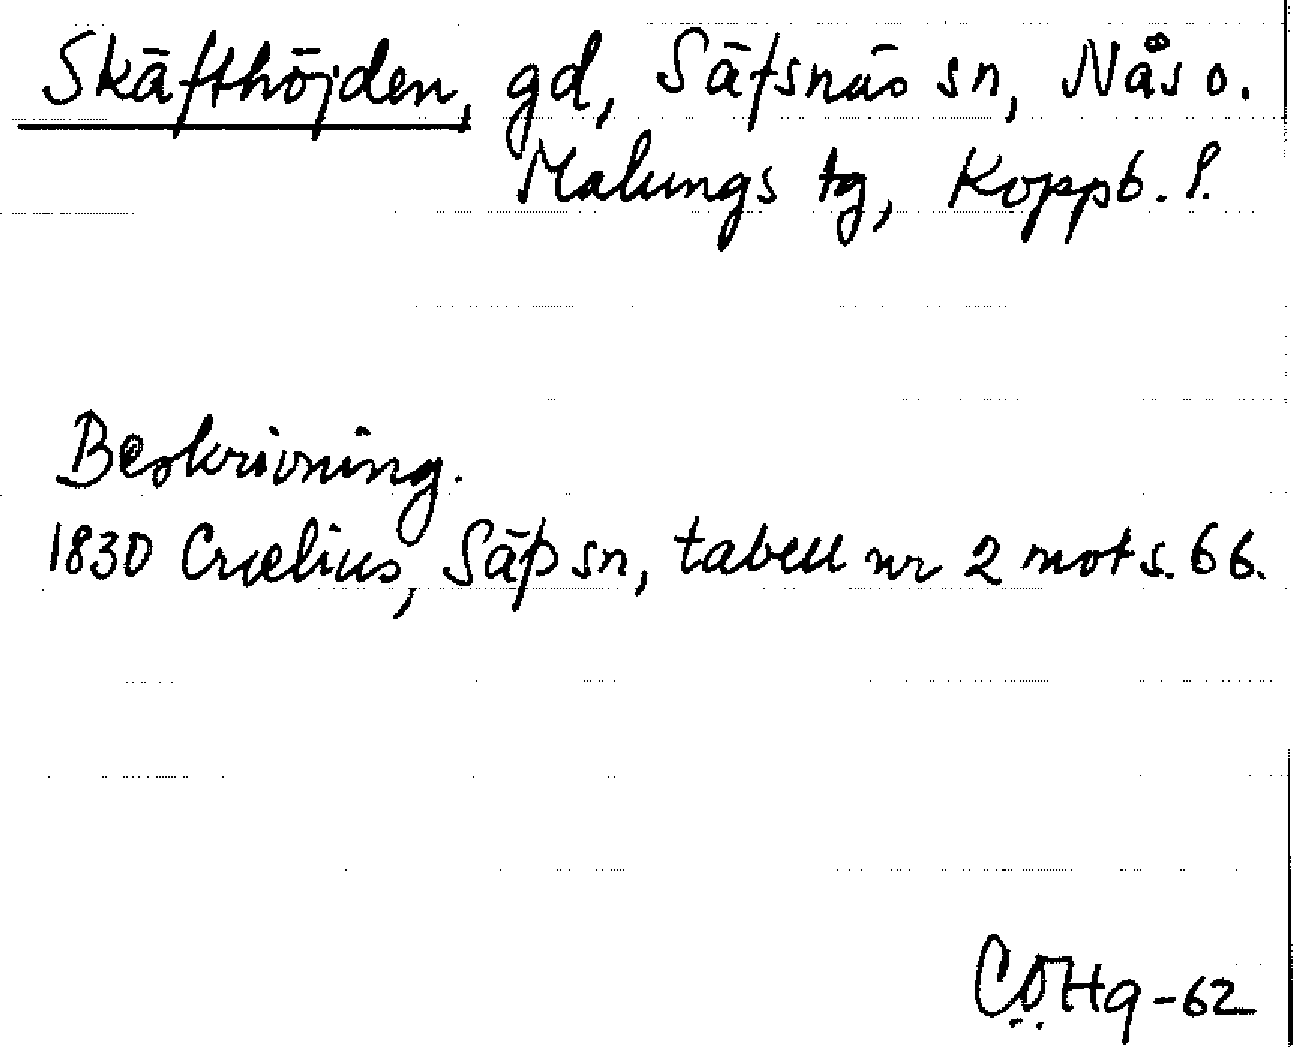 Skäfthöjden, gd, Säfsnäs sn, Nås o.
Malungs tg, Koppb. l.
Beskrivning.
1830 Crælius, Säfs sn, tabell nr 2 mot s. 66.
CÖHq-62